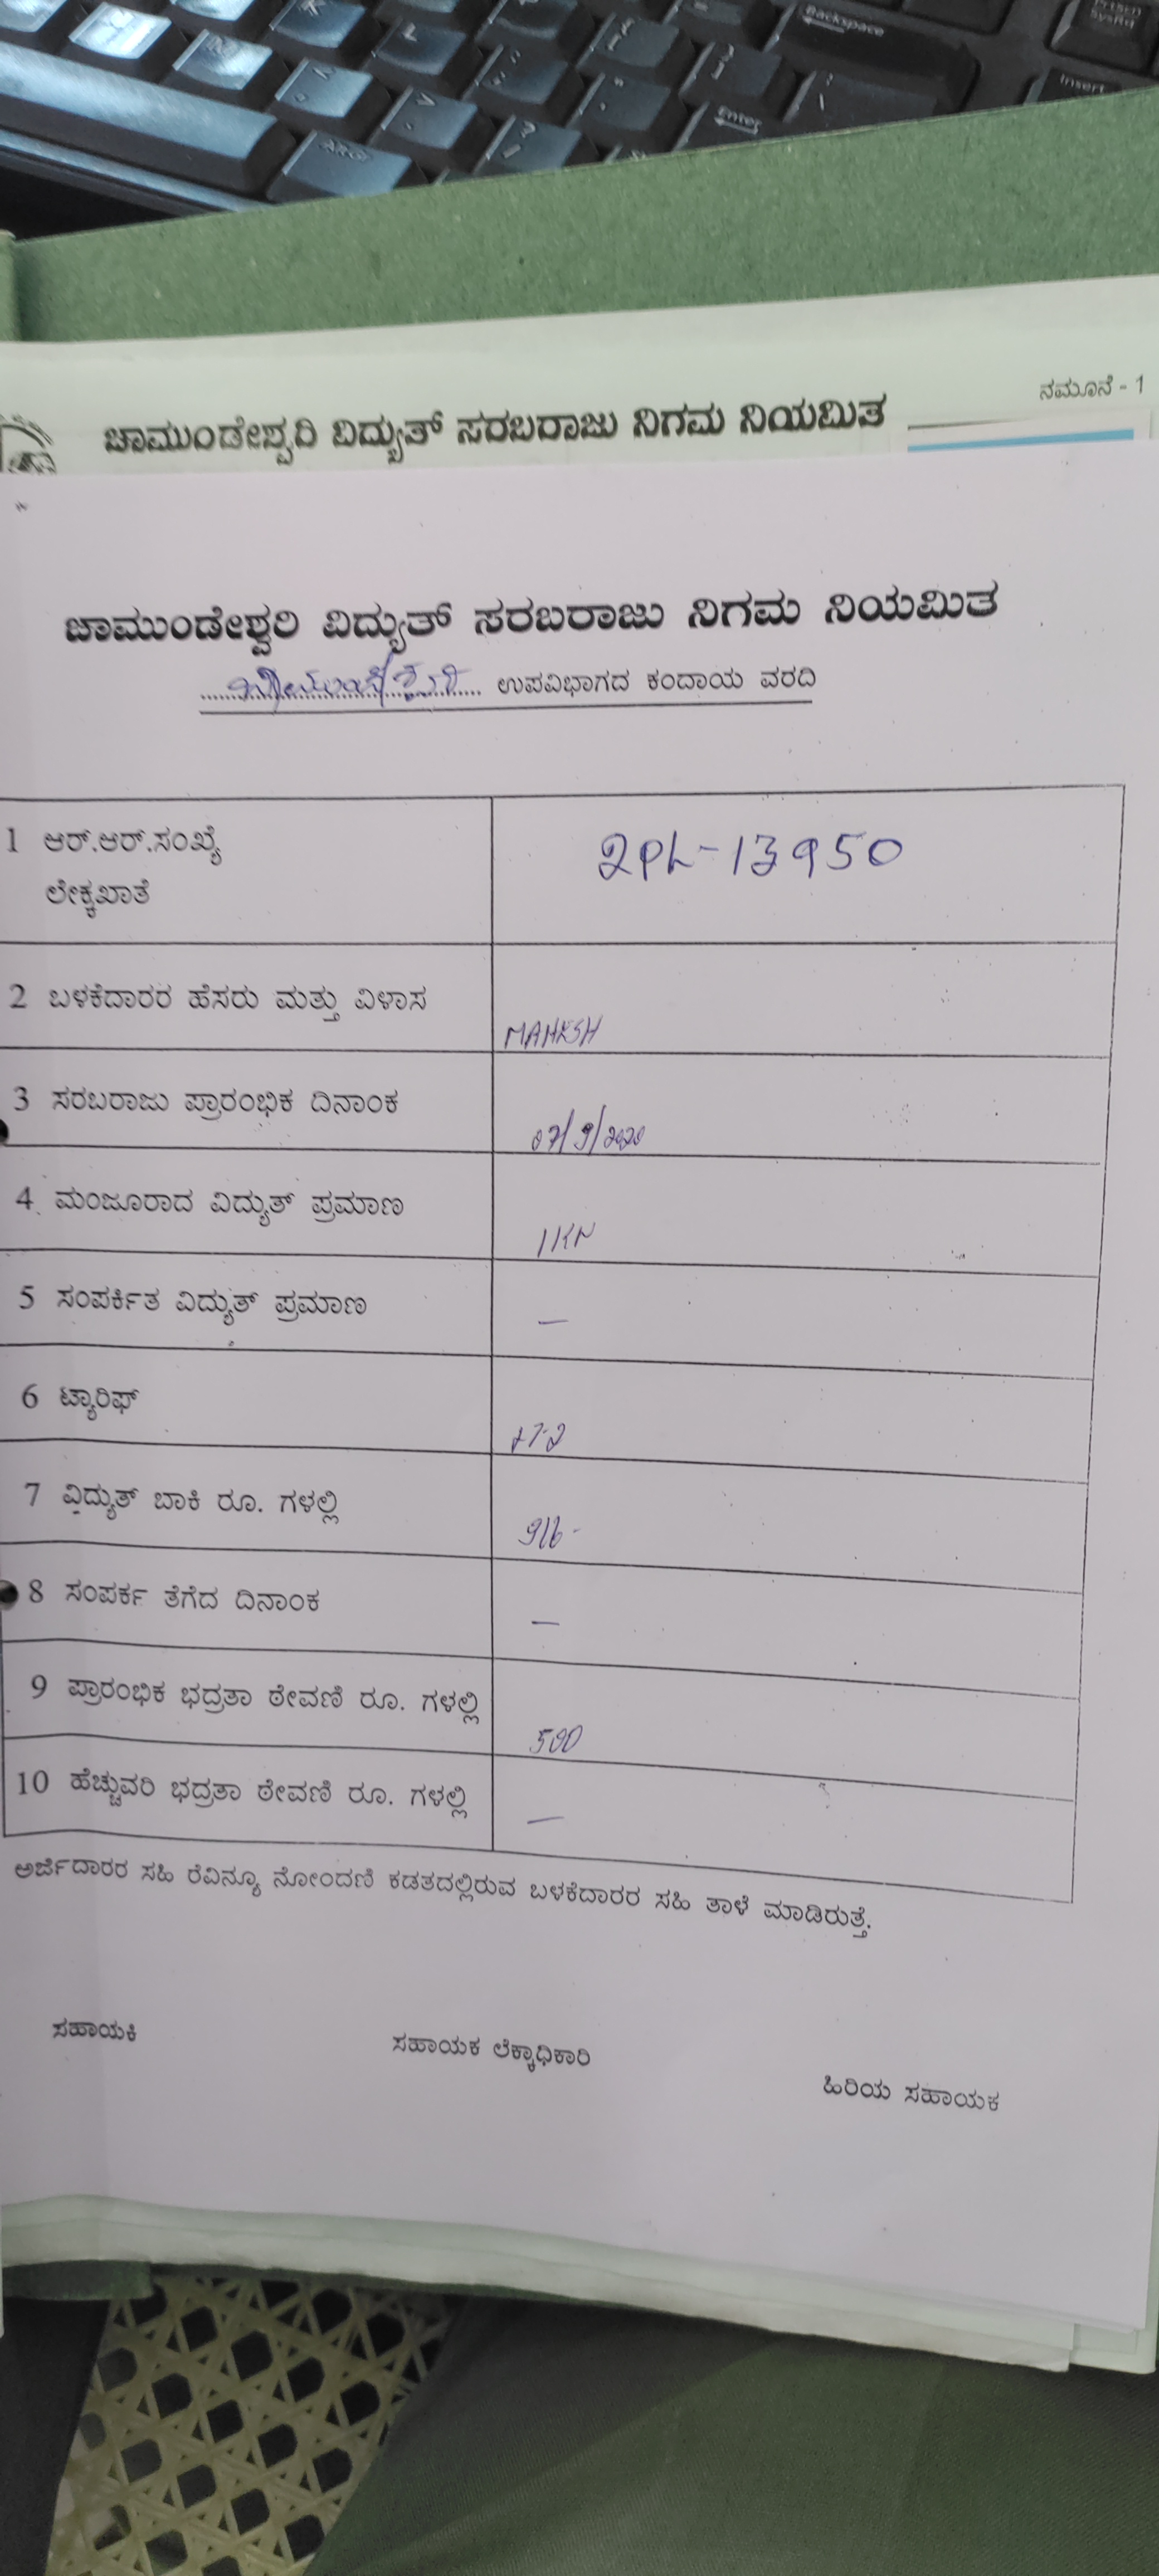 ನಮೂನೆ - 1
ಚಾಮುಂಡೇಶ್ವರಿ ವಿದ್ಯುತ್ ಸರಬರಾಜು ನಿಗಮ ನಿಯಮಿತ
ಚಾಮುಂಡೇಶ್ವರಿ ವಿದ್ಯುತ್ ಸರಬರಾಜು ನಿಗಮ ನಿಯಮಿತ
ಉಪವಿಭಾಗದ ಕಂದಾಯ ವರದಿ
1 ಆರ್.ಆರ್.ಸಂಖ್ಯೆ 2PL-13950
ಲೇಕ್ಕಖಾತೆ
2 ಬಳಕೆದಾರರ ಹೆಸರು ಮತ್ತು ವಿಳಾಸ MAHESH
3 ಸರಬರಾಜು ಪ್ರಾರಂಭಿಕ ದಿನಾಂಕ 07/9/2020
4 ಮಂಜೂರಾದ ವಿದ್ಯುತ್ ಪ್ರಮಾಣ 1KW
5 ಸಂಪರ್ಕಿತ ವಿದ್ಯುತ್ ಪ್ರಮಾಣ —
6 ಟ್ಯಾರಿಫ್
7 ವಿದ್ಯುತ್ ಬಾಕಿ ರೂ. ಗಳಲ್ಲಿ 916-
8 ಸಂಪರ್ಕ ತೆಗೆದ ದಿನಾಂಕ —
9 ಪ್ರಾರಂಭಿಕ ಭದ್ರತಾ ಠೇವಣಿ ರೂ. ಗಳಲ್ಲಿ 500
10 ಹೆಚ್ಚುವರಿ ಭದ್ರತಾ ಠೇವಣಿ ರೂ. ಗಳಲ್ಲಿ —
ಅರ್ಜಿದಾರರ ಸಹಿ ರೆವಿನ್ಯೂ ನೋಂದಣಿ ಕಡತದಲ್ಲಿರುವ ಬಳಕೆದಾರರ ಸಹಿ ತಾಳೆ ಮಾಡಿರುತ್ತೆ.
ಸಹಾಯಕಿ ಸಹಾಯಕ ಲೆಕ್ಕಾಧಿಕಾರಿ ಹಿರಿಯ ಸಹಾಯಕ